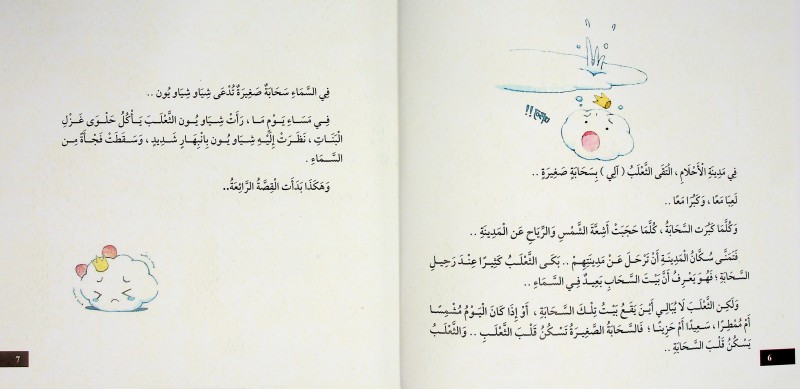 فِي مَدِينَةِ الْأَحْلَامِ ، الْتَقَى الثَّعْلَبُ ( آلِي ) بِسَحَابَةٍ صَغِيرَةٍ ..
لَعِبَا مَعًا ، وَكَبُرَا مَعًا ..
وَكُلَّمَا كَبُرَت السَّحَابَةُ ، كُلَّمَا حَجَبَتْ أَشِعَّةَ الشَّمْسِ وَالرِّيَاحِ عَن الْمَدِينَةِ ..
فَتَمَنَّى سُكَّانُ الْمَدِينَةِ أَنْ تَرْحَلَ عَنْ مَدِينَتِهِمْ .. بَكَى الثَّعْلَبُ كَثِيرًا عِنْدَ رَحِيلِ
السَّحَابَةِ ؛ فَهُوَ يَعْرِفُ أَنَّ بَيْتَ السَّحَابِ بَعِيدٌ فِي السَّمَاءِ ..
وَلَكِن الثَّعْلَبَ لَا يُبَالِي أَيْنَ يَقَعُ بَيْتُ تِلْكَ السَّحَابَةِ ، أَوْ إِذَا كَانَ الْيَوْمُ مُشْمِسًا
أَمْ مُمْطِرًا ، سَعِيدًا أَمْ حَزِينًا ؛ فَالسَّحَابَةُ الصَّغِيرَةُ تَسْكُنُ قَلْبَ الثَّعْلَبِ .. وَالثَّعْلَبُ
يَسْكُنُ قَلْبَ السَّحَابَةِ ..
6
فِي السَّمَاءِ سَحَابَةٌ صَغِيرَةٌ تُدْعَى شِيَاو شِيَاو يُون ..
فِي مَسَاءِ يَوْمٍ مَا ، رَأَتْ شِيَاو يُون الثَّعْلَبَ يَأْكُلُ حَلْوَى غَزْلِ
الْبَنَاتِ ، نَظَرَتْ إِلَيْهِ شِيَاو يُون بِانْبِهَارٍ شَدِيدٍ ، وَسَقَطَتْ فَجْأَةً مِن
السَّمَاءِ .
وَهَكَذَا بَدَأَت الْقِصَّةُ الرَّائِعَةُ..
7